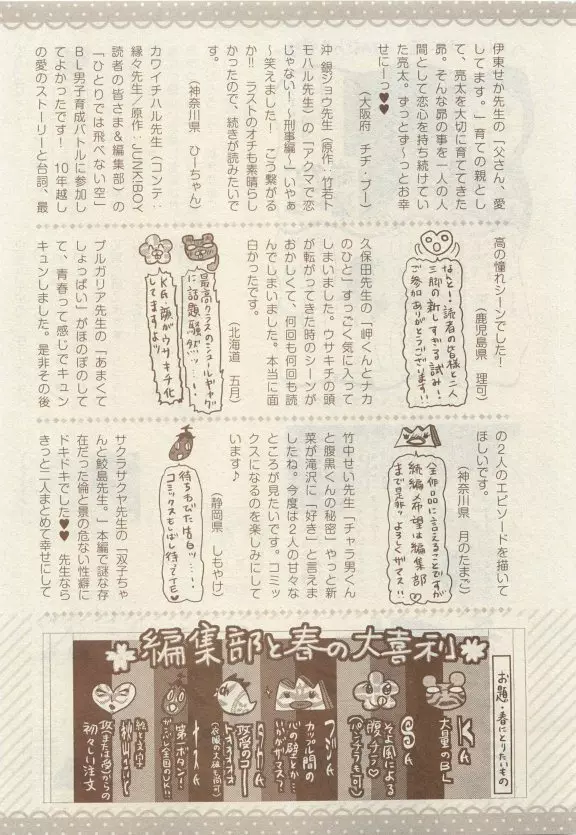 伊東せか先生の「父さん、愛
してます。」育ての親とし
て、亮太を大切に育ててきた
昴。そんな昴の事を一人の人
間として恋心を持ち続けてい
た亮太。ずっとず〜っとお幸
せにーっ♥♥
（大阪府　チチ・ブー）
沖 銀ジョウ先生（原作：竹若ト
モハル先生）の「アクマで恋
じゃない！〜刑事編〜」いやぁ
〜笑えました！　こう繋がる
か!!　ラストのオチも素晴らし
かったので、続きが読みたいで
す。
（神奈川県　ひーちゃん）
カワイチハル先生（コンテ：
緑々先生／原作：JUNKIBOY
読者の皆さま&編集部）の
「ひとりでは飛べない空」
BL男子育成バトルに参加し
てよかったです！　10年越し
の愛のストーリーと台詞、最
高の憧れシーンでした！
（鹿児島県　理可）
なんと！読者の皆様と二人
三脚の新しすぎる試み！
ご参加ありがとうございます!!
久保田先生の「岬くんとナカ
のひと」すっごく気に入って
しまいました。ウサキチの頭
が転がってきた時のシーンが
おかしくて、何回も何回も読
んでしまいました。本当に面
白かったです。
（北海道　五月）
最高クラスのシュールギャグ
に話題騒然ッ…！
KA・顔がウサキチ化
してますよッ
ブルガリア先生の「あまくて
しょっぱい」がほのぼのして
て、青春って感じでキュン
キュンしました。是非その後
の2人のエピソードを描いて
ほしいです。
（神奈川県　月のたまご）
全作品に言えることですが
続編希望は編集部
まで是非ッよろしくザマス!!
竹中せい先生「チャラ男くん
と腹黒くんの秘密」やっと新
菜が滝沢に「好き」と言えま
したね。今度は2人の甘々な
ところが見たいです。コミッ
クスになるのを楽しみにして
います♪
（静岡県　しもやけ）
待ちわびた告白ッ…！
コミックスもしばし待ってTE♥
サクラサクヤ先生の「双子ちゃ
んと鮫島先生。」本編で謎な存
在だった倫と景の危ない性癖に
ドキドキでした♥♥　先生なら
きっと二人まとめて幸せにして
編集部と春の大喜利
お題・春にとりたいもの
KA
大量のBL
SA
そよ風による
腹チラ♡
（パンチラも可）
フジA
カップル間の
心の壁とか…
いかがザマス？
攻受のコート
（衣服の大様も尚可）
第一ボタン！
攻（または受）からの
初々しい注文